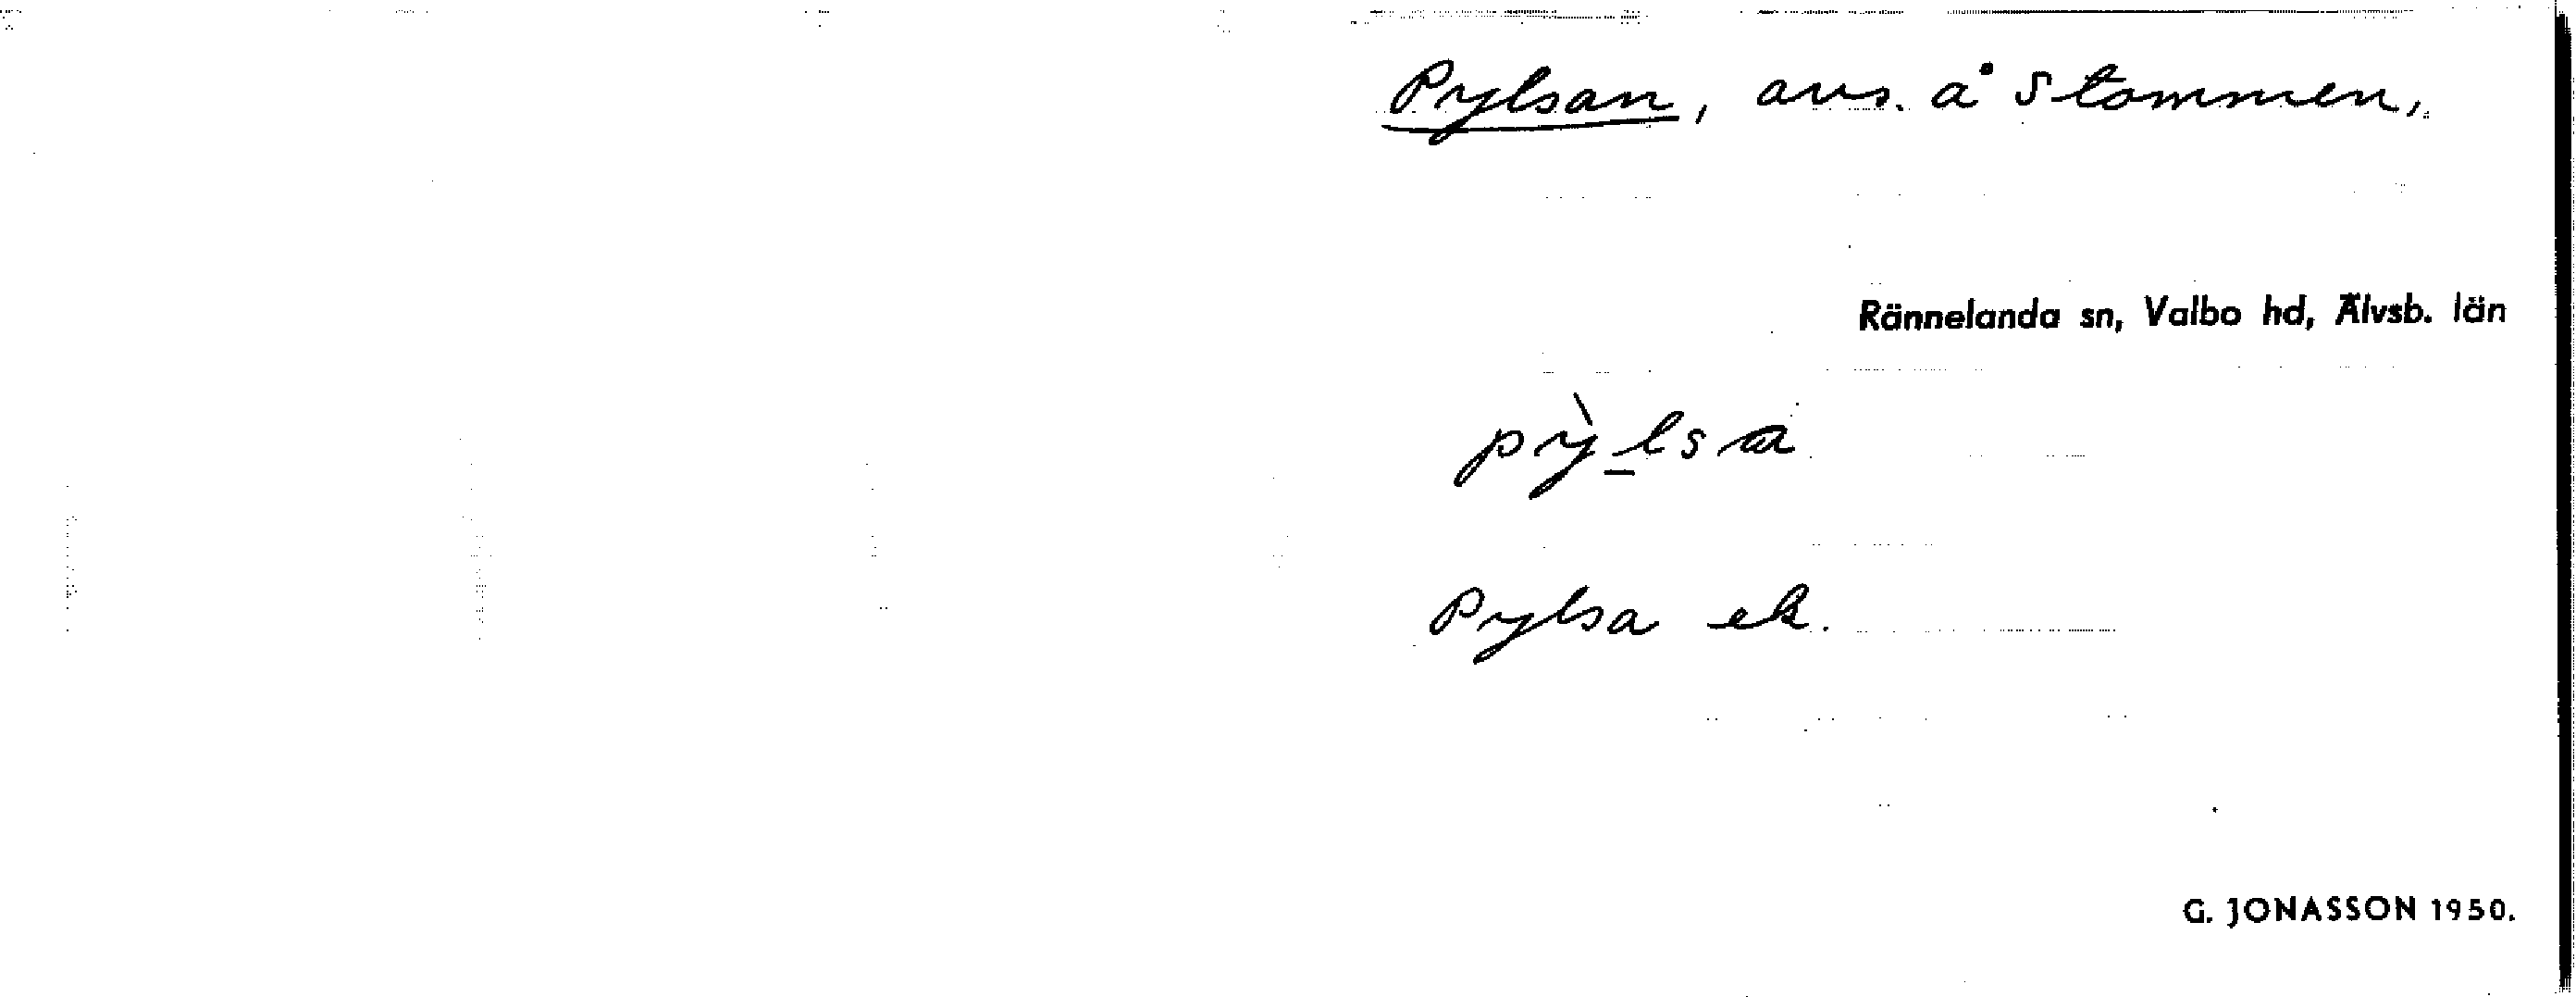 Pylsan, avs. å Stommen,
Rännelanda sn, Valbo hd, Älvsb. län
pỳlsa
Pylsa ek.
G. JONASSON 1950.